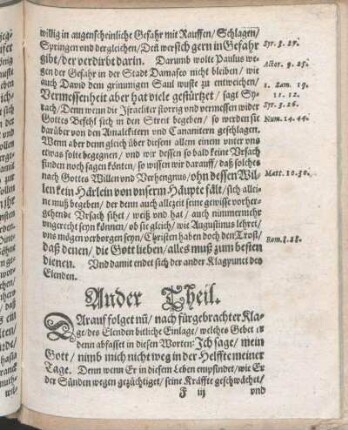 willig in augenscheinliche Gefahr mit Rauffen/ Schlagen/
Springen und dergleichen/ Den wer sich gern in Gefahr
gibt/ der verdirbt darin. Darumb wolte Paulus we-
gen der Gefahr in der Stadt Damasco nicht bleiben/ wie
auch David dem grimmigen Saul muste zu entweichen/
Vermessenheit aber hat viele gestürtzet/ sagt Sy-
rach/ Denn wenn die Israeliter störrig und vermessen wider
Gottes Befehl sich in den Streit begeben/ so werden sie
darüber von den Amalekitern und Cananitern geschlagen.
Wann aber denn gleich über diesem allem einem unter uns
etwas solte begegnen/ und wir dessen so bald keine Ursach
finden noch sagen könten/ so wissen wir darauff/ daß solches
nach Gottes Willen und Verhengnus/ ohn dessen Wil-
len kein Härlein von unserm Häupte fält/ sich allei-
ne muß begeben/ der denn auch allezeit seine gewisse vorher-
gehende Ursach sihet/ weiß und hat/ auch nimmermehr
ungerecht seyn können/ ob sie gleich/ wie Augustinus lehret/
uns mögen verborgen seyn/ Christen haben doch den Trost/
daß denen/ die Gott lieben/ alles muß zum besten
dienen. Und damit endet sich der ander Klagpunct des
Elenden.
Ander Theil.
Darauf folget nū/ nach fürgebrachter Kla-
ge/ des Elenden bitliche Einlage/ welches Gebet er
denn abfasset in diesen Worten: Ich sage/ mein
Gott/ nimb mich nicht weg in der Helffte meiner
Tage. Denn wenn Er in diesem Leben empfindet/ wie Er
der Sünden wegen gezüchtiget/ seine Kräffte geschwächet/
F iij und
Syr. 3. 27.
Actor. 9. 25.
1. Sam. 19.
11. 12.
Syr. 3. 26.
Num. 14. 44.
Matt. 10. 30.
Rom. 8. 28.